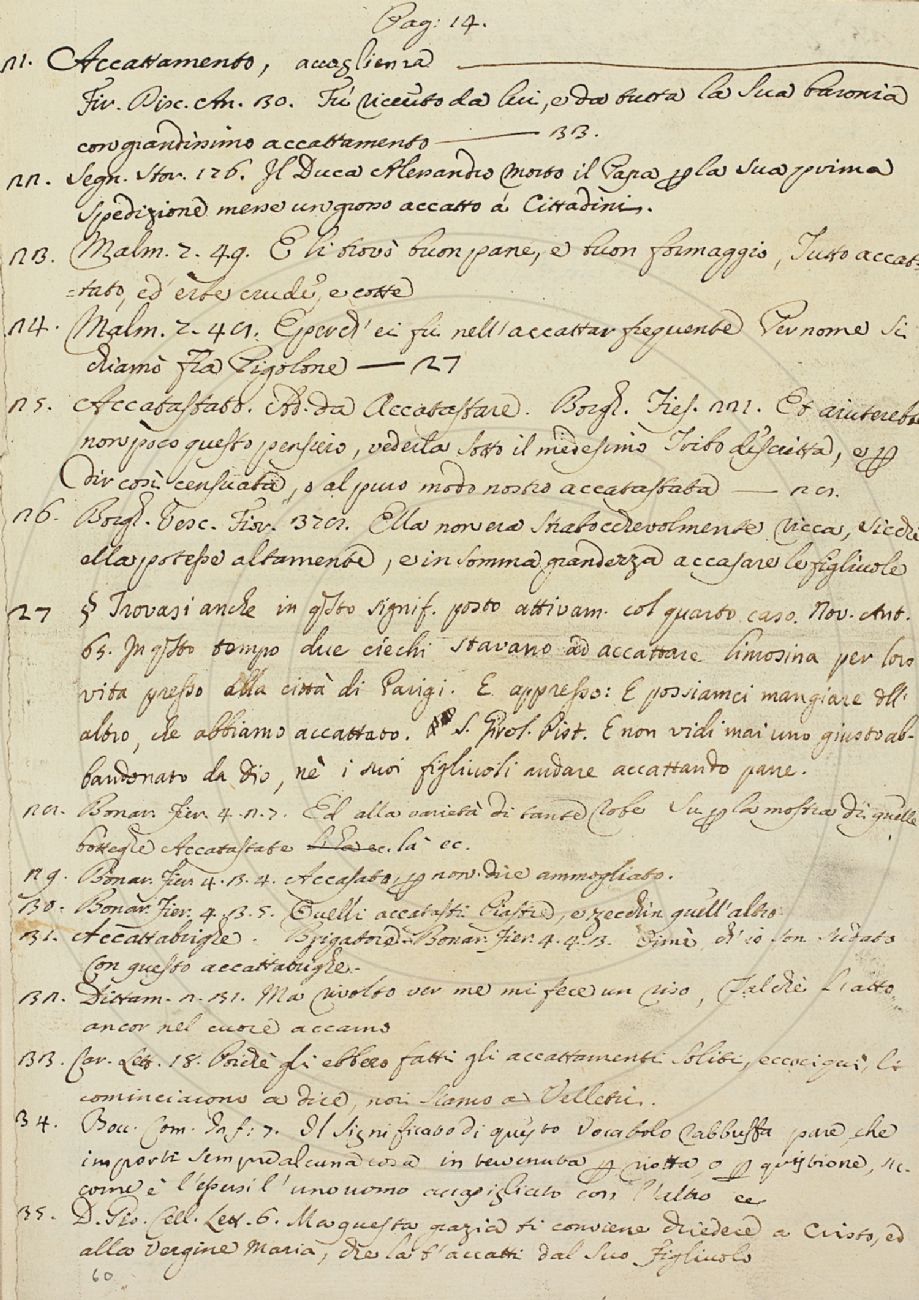 Pag: 14.
21. Accattamento, accoglienza
Fir. Disc. An. 30. Fù ricevuto da lui, e da tutta la sua baronia
con grandissimo accattamento — 33.
22. Segn. Stor. 176. Il Duca Alessandro morto il Papa p la sua prima
spedizione messe un grosso accatto a' Cittadini.
23. Malm. 2. 49. E li trovò buon pane, e buon formaggio, Tutto accat=
=tato, ed erbe crude, e cotte
24. Malm. 2. 48. E perch' ei fù nell'accattar frequente Per nome si
chiamò fra Pigolone — 27
25. Accatastato. Add. da Accatastare. Borgh. Fies. 221. Et aiuterebbe
non poco questo pensiero, vederla sotto il medesimo Tribo descritta, e p
dir così censuata, o al puro modo nostro accatastata — 28.
26. Borgh. Vesc. Fior. 378. Ella non era strabocchevolmente ricca, sicchè
ella potesse altamente, e in somma grandezza accasare le figliuole
27 § Trovasi anche in qsto signif. posto attivam. col quarto caso. Nov. Ant.
65. In qsto tempo due ciechi stavano ad accattare limosina per loro
vita presso alla città di Parigi. E appresso: E possiamci mangiare dll'
altro, che abbiamo accattato. S. Girol. Pist. E non vidi mai uno giusto ab-
bandonato da Dio, nè i suoi figliuoli andare accattando pane.
28. Bonar. Fier. 4. 2. 7. Ed alla varietà di tante robe Su p la mostra di quelle
botteghe Accatastate là ec.
29. Bonar. Fier. 4. 3. 4. Accasato, p non dire ammogliato.
30. Bonar. Fier. 4. 3. 5. Quelli accatasti Piastre, e zecchin quell'altro
31. Accattabrighe. Brigatore. Bonar. Fier. 4. 4. 3. Oimè, ch'io son sudato
Con questo accattabrighe.
32. Dittam. 2. 31. Ma rivolto ver me mi fece un riso, Talchè l'atto
ancor nel cuore accamo
33. Car. Lett. 18. Poichè gli ebbero fatti gli accattamenti soliti, eccoci quì, li
cominciarono a dire, noi siamo a Velletri.
34. Bocc. Com. Inf: 7. Il significato di questo vocabolo rabbuffa pare, che
importi sempre alcuna cosa intervenuta p riotta, o p quistione, sic-
come è l'essersi l'uno uomo accapigliato con l'altro ec
35. D. Gio. Cell. Lett. 6. Ma questa grazia ti conviene chiedere a Cristo, ed
alla Vergine Maria, che la t'accatti dal suo Figliuolo
60